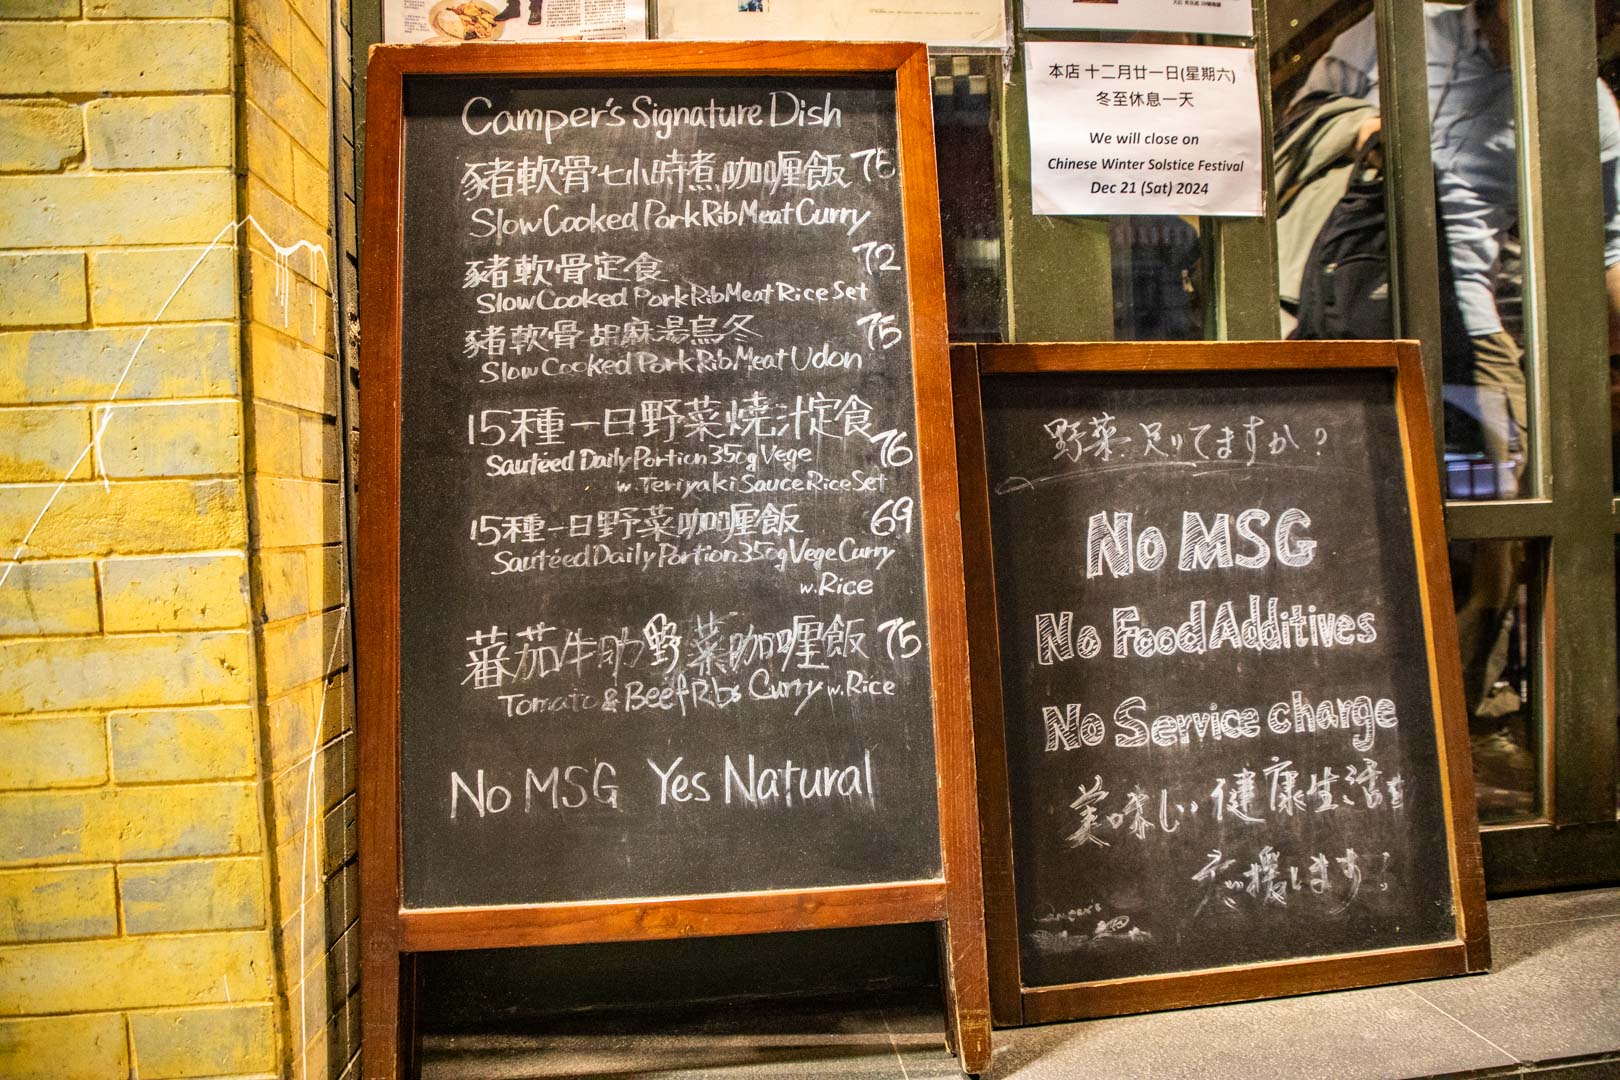 Camper's Signature Dish
豬軟骨七小時煮咖喱飯 75
Slow Cooked Pork Rib Meat Curry
豬軟骨定食 72
Slow Cooked Pork Rib Meat Rice Set
豬軟骨胡麻湯烏冬 75
Slow Cooked Pork Rib Meat Udon
15種一日野菜燒汁定食 76
Sauteed Daily Portion 350g Vege
w. Teriyaki Sauce Rice Set
15種一日野菜咖喱飯 69
Sautéed Daily Portion 350g Vege Curry
w. Rice
蕃茄牛肋野菜咖喱飯 75
Tomato & Beef Ribs Curry w. Rice
No MSG Yes Natural
本店 十二月廿一日(星期六)
冬至休息一天
We will close on
Chinese Winter Solstice Festival
Dec 21 (Sat) 2024
野菜 足りてますか?
No MSG
No Food Additives
No Service charge
美味しい 健康生活を
応援します!
Camper's